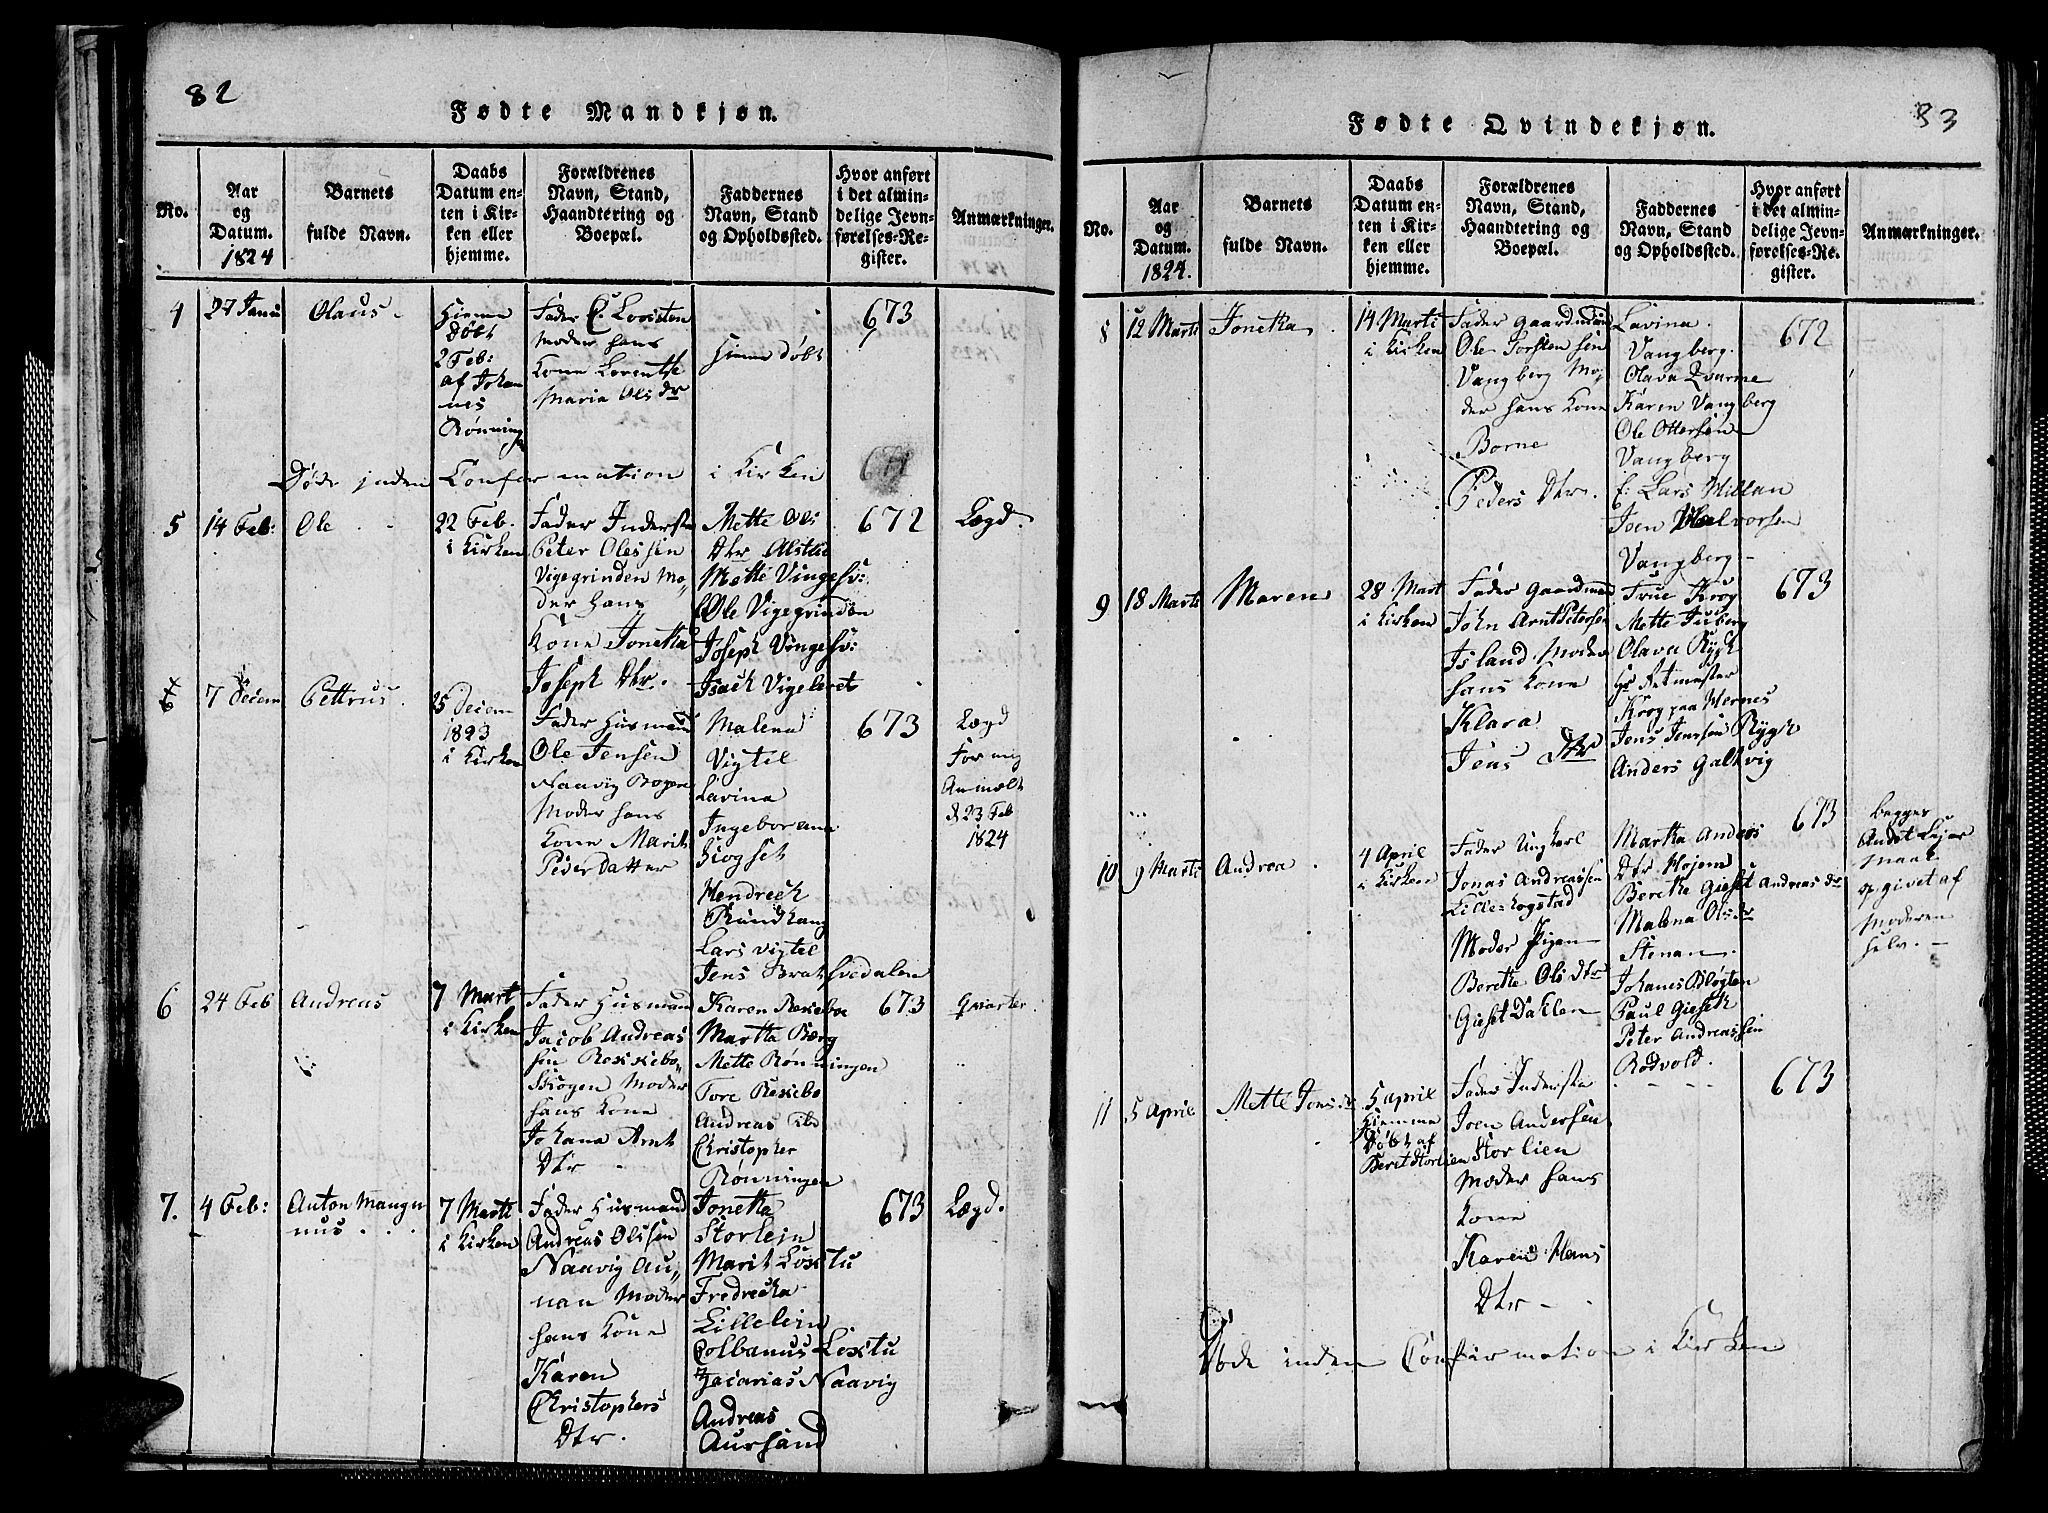 82
Fødte Mandkjøn.
No.
Aar
og
Datum.
1824
Barnets
fulde Navn.
Daabs
Datum en-
ten i Kir-
ken eller
hjemme.
Forældrenes
Navn, Stand,
Haandtering og
Boepæl.
Faddernes
Navn, Stand
og Opholdssted.
Hvor anført
i det almin-
delige Jevn-
førelses-Re-
gister.
Anmærkninger.
4
27 Janu
Olaus
Hiemme
Døbt
2 Feb:
af Johan
nes
Rønning
Fader
Moder hans
Kone Lorentse
Maria Ols Dr
Hieme døbt
673
Døde inden Confirmation i Kirken
5
14 Feb:
Ole
22 Feb.
i Kirken
Fader Inderste
Peter Olessen
Vigegrinden Mo
der hans
Kone Jonetka
Joseph Dtr.
Mette Ols
Dtr Alstlie
Mette Vingesv:
Ole Vigegrinden
Joseph Vingesv:
Isach Vigeleret
672
Lægd.
6
7 Decem
Pettrus
25 Decem
1823
i Kirken
Fader Husmand
Ole Jensen
Naavig
Moder hans
Kone Marit
Peder Datter
Malena
Vigtil
Lavina
Ingebor ane
Hendrech
Lars Vigtil
Jens Bratsvedalen
673
Lægd
For mig
Anmelt
d. 23 Feb
1824
6
24 Feb
Andreas
7 Mart
i Kirken
Fader Husmand
Jacob Andreas
sen Rexxebo
Skogen Moder
hans Kone
Johana Arnt
Dtr
Karen Rexebo
Martha Berg
Mette Rønningen
Tore Rexebo
Andreas ibd
Christopher
Rønningen
673
qvarter
7.
4 Feb:
Anton Mangu
nus
7 Marti
i Kirken
Fader Husmand
Andreas Olssen
Naavig Au„
nan Moder
hans Kone
Karen
Christophers
Dtr.
Jonetka
Storlein
Marit Loxtu
Fredrecka
Lillelein
Colbanus Loxtu
Zacarias Naavig
Andreas
Aursand
673
Lægd.
83
Fødte Qvindekjøn.
No.
Aar
og
Datum.
1824.
Barnets
fulde Navn.
Daabs
Datum en-
ten i Kir-
ken eller
hjemme.
Forældrenes
Navn, Stand,
Haandtering og
Boepæl.
Faddernes
Navn, Stand
og Opholdssted.
Hvor anført
i det almin-
delige Jevn-
førelses-Re-
gister.
Anmærkninger.
8
12 Marti
Jonetka
14 Marti
i Kirken
Fader Gaardmand
Ole Torsten sen
Vangberg Mo
der hans Kone
Borne
Peders Dtr.
Lavina
Vangberg.
Olava
Karen Vangberg
Ole Ottersen
Vangberg
Lars Millan
Joen Halvorsen
Vangberg
672
9
18 Marti
Maren
28 Mart
i Kirken
Fader Gaardmand
John Arnt Petersen
Island. Moder
hans Kone
Klara
Jens Dtr
Frue Krog
Mette Juberg
Olava Rygh
Hr Artmester
Krog paa Wernes
Jens Jenssen Rygh
Anders Galtvig
673
10
9 Marti
Andrea
4 April
i Kirken
Fader Ungkarl
Jonas Andreassen
Lille-kogstad
Moder Pigen
Beretke Ols dtr
Gieset Dahlen
Martha Anders
Dtr. Hojem
Beretke Gieset Andreas dr
Malena Olsdr
Stenan
Johanes Bløgten
Paul Gieseth
Peter Andreassen
Rødvold.
673
begges
Andet Lejer
maal
opgivet af
Moderen
selv.
11
5 April
Mette Jons dr
5 April
Hiemme
Døbt af
Berit Storlien
Fader Inderste
Joen Andersen
Storlien
Moder hans
Kone
Karen Hans
Dtr
673
Døde inden Confirmation i Kirken